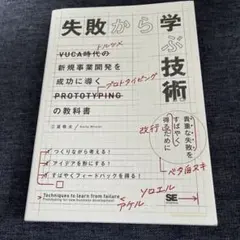 失敗から学ぶ技術
VUCA時代の
トルツメ
新規事業開発を
成功に導く
プロトタイピング
PROTOTYPING
の教科書
三冨敬太
貴重な失敗を
すばやく
得るために
改行
ベタ赤ヌキ
つくりながら考える!
アイデアを形にする!
すばやくフィードバックを得る!
ソロエル
Techniques to learn from failure
Prototyping for new business development
アケル
SE